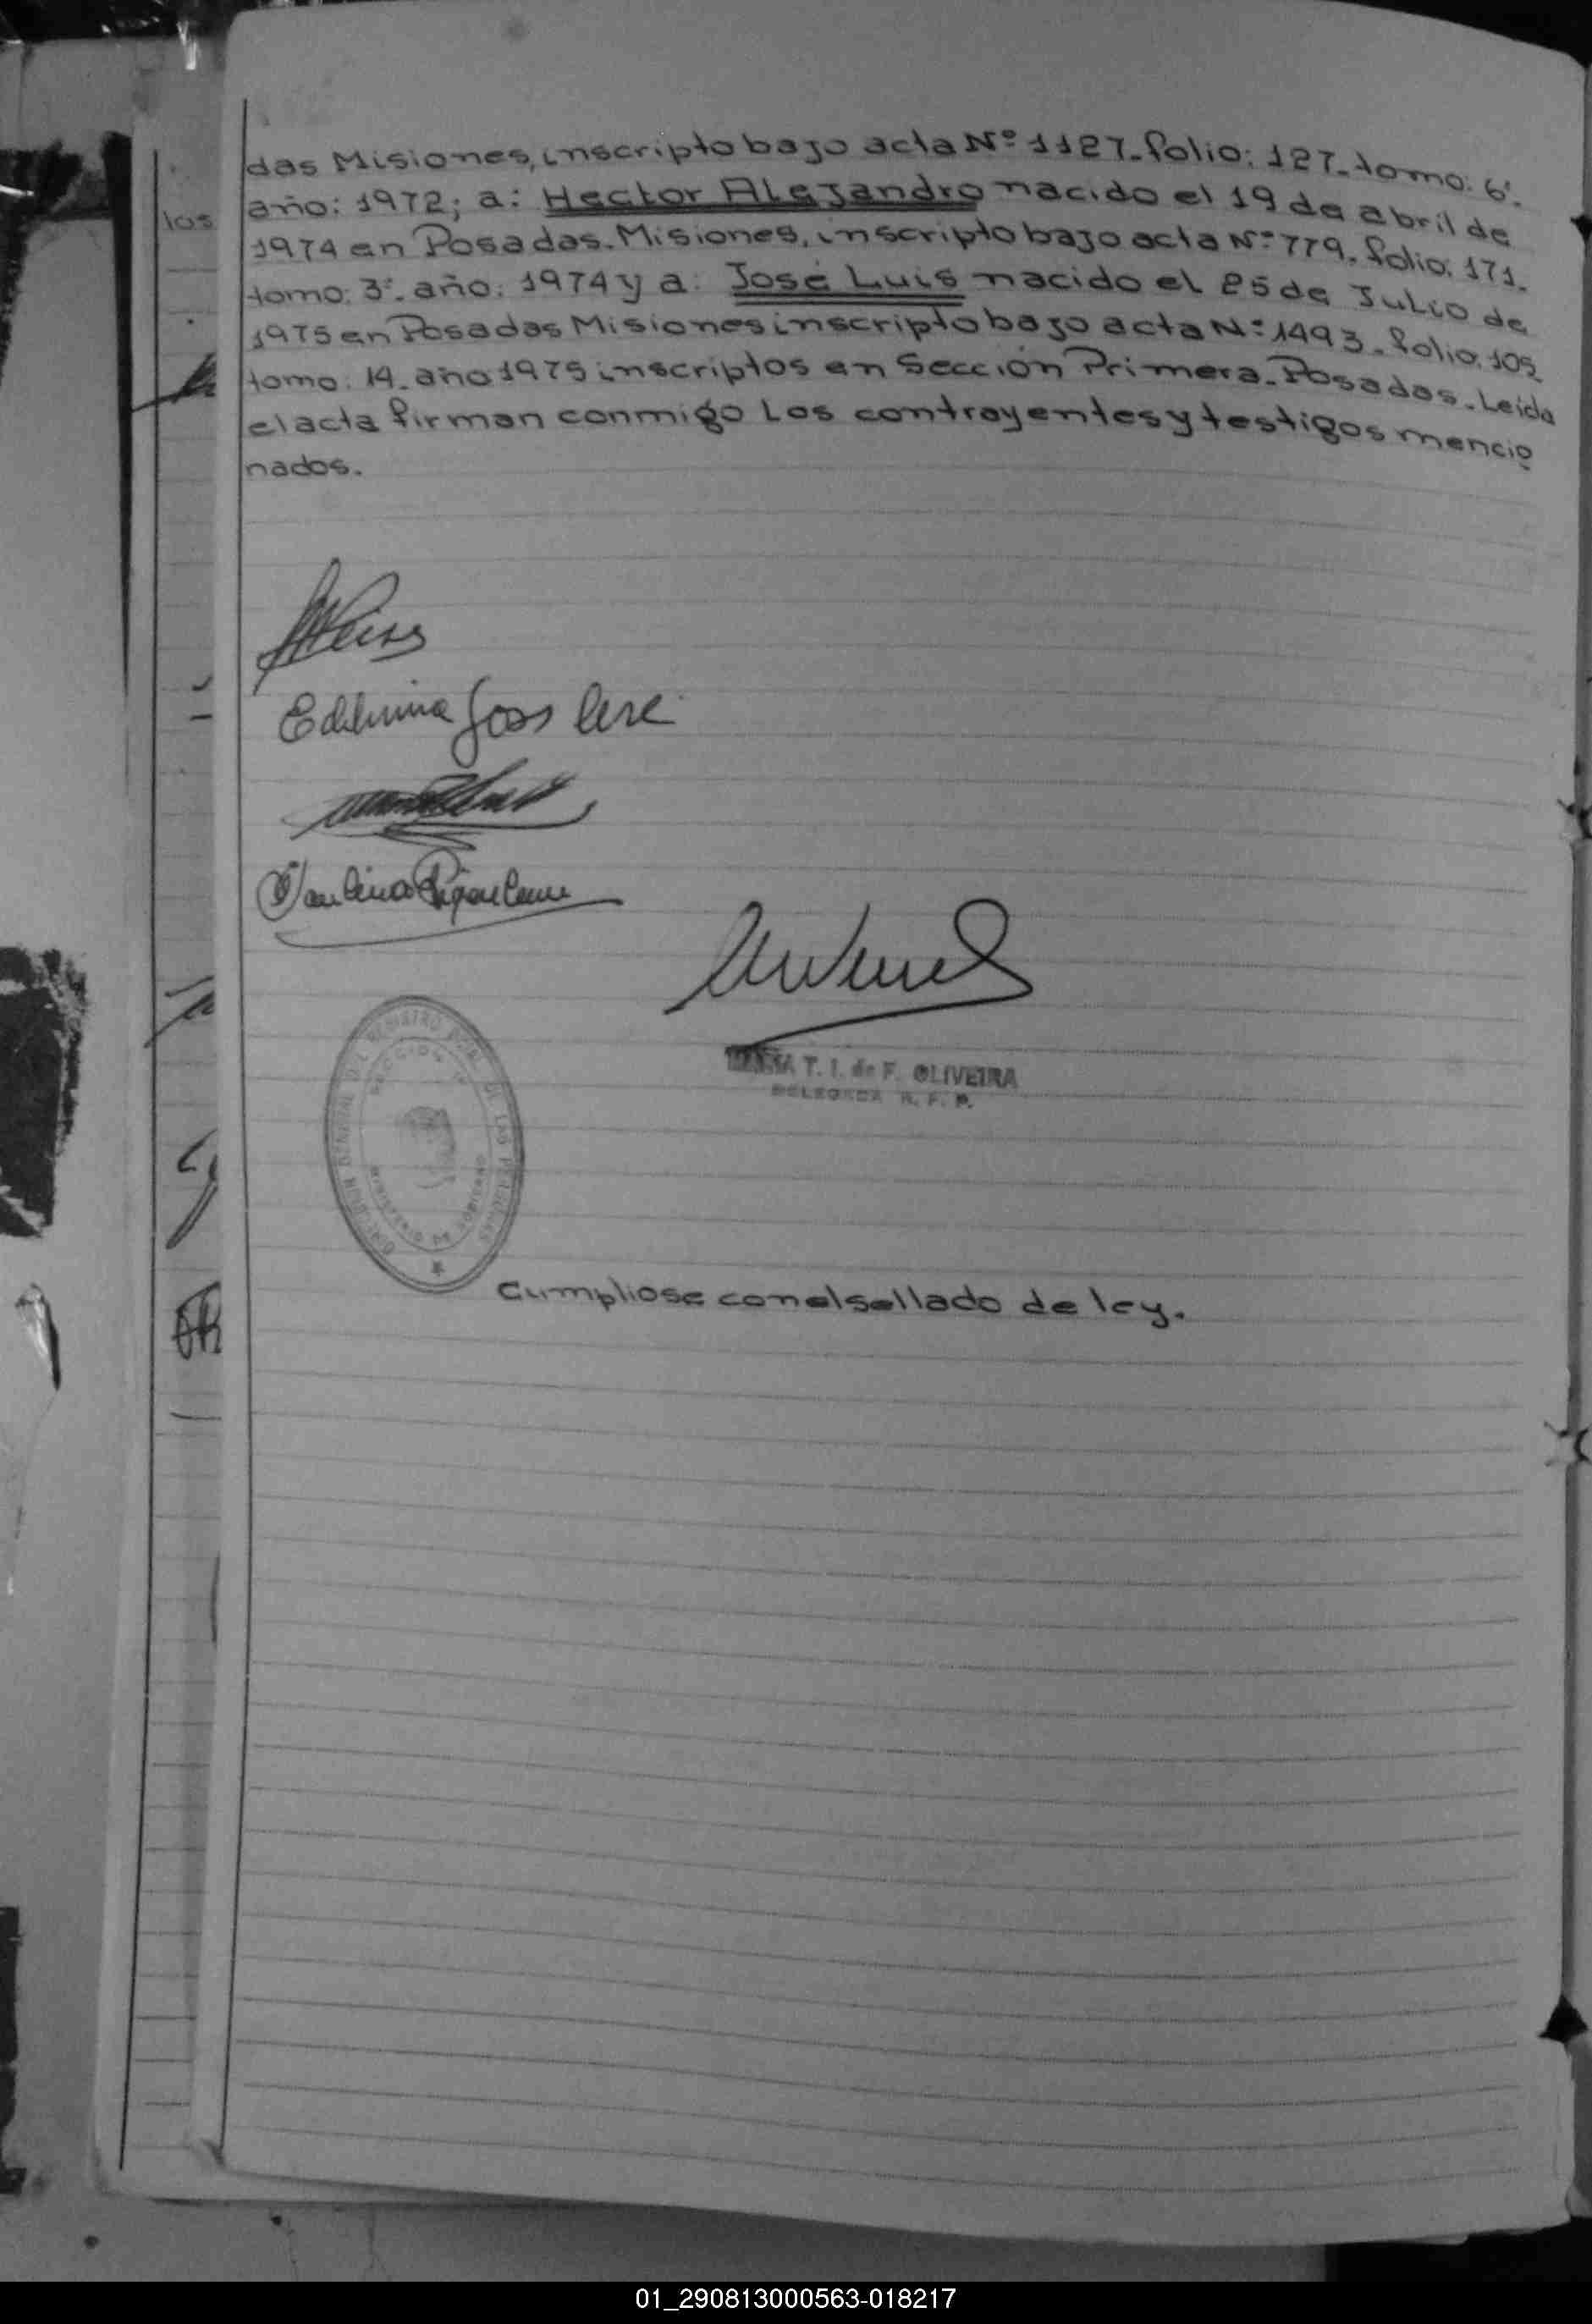 das Misiones, inscripto bajo acta Nº 1127. folio: 127. tomo: 6º.
año: 1972; a: Hector Alejandro nacido el 19 de abril de
los
1974 en Posadas. Misiones, inscripto bajo acta Nº 779. folio: 171.
tomo: 3º. año: 1974 y a: José Luis nacido el 25 de Julio de
1975 en Posadas Misiones inscripto bajo acta Nº 1493. folio: 105
tomo: 14. año 1975 inscriptos en Sección Primera. Posadas. Leida
el acta firman conmigo Los contrayentes y testigos mencio
nados.
T. I. de F. OLIVEIRA
DELEGADA R. P. P.
DEL REGISTRO DE LAS PERSONAS
SECCION
MINISTERIO DE GOBIERNO
Cumpliose con el sellado de ley.
01_290813000563-018217